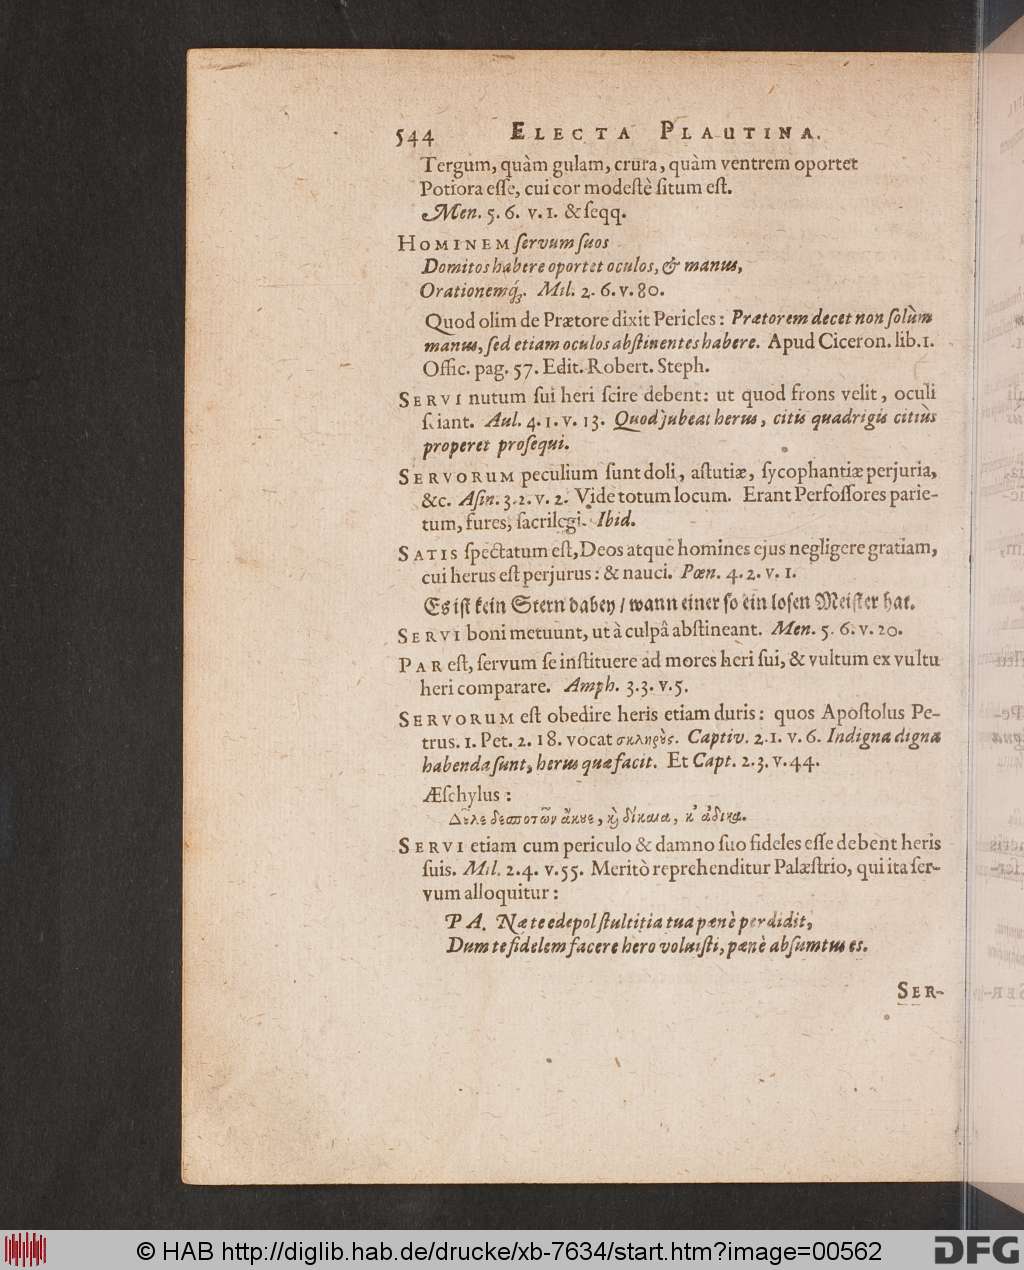 544 ELECTA PLAUTINA.
Tergum, quàm gulam, crura, quàm ventrem oportet
Potiora eſſe, cui cor modeſtè ſitum eſt.
Men. 5. 6. v. 1. & ſeqq.
HOMINEM ſervum ſuos
Domitos habere oportet oculos, & manus,
Orationemq́;. Mil. 2. 6. v. 80.
Quod olim de Prætore dixit Pericles: Prætorem decet non ſolùm
manus, ſed etiam oculos abſtinentes habere. Apud Ciceron. lib. 1.
Offic. pag. 57. Edit. Robert. Steph.
SERVI nutum ſui heri ſcire debent: ut quod frons velit, oculi
ſciant. Aul. 4. 1. v. 13. Quod jubeat herus, citis quadrigis citiùs
properet proſequi.
SERVORUM peculium ſunt doli, aſtutiæ, ſycophantiæ perjuria,
&c. Aſin. 3. 2. v. 2. Vide totum locum. Erant Perfoſſores parie-
tum, fures, ſacrilegi. Ibid.
SATIS ſpectatum eſt, Deos atque homines ejus negligere gratiam,
cui herus eſt perjurus: & nauci. Pœn. 4. 2. v. 1.
Es iſt kein Stern dabey / wann einer ſo ein loſen Meiſter hat.
SERVI boni metuunt, ut à culpâ abſtineant. Men. 5. 6. v. 20.
PAR eſt, ſervum ſe inſtituere ad mores heri ſui, & vultum ex vultu
heri comparare. Amph. 3. 3. v. 5.
SERVORUM eſt obedire heris etiam duris: quos Apoſtolus Pe-
trus. 1. Pet. 2. 18. vocat σκληρȣ̀ς. Captiv. 2. 1. v. 6. Indigna digna
habenda ſunt, herus quæ facit. Et Capt. 2. 3. v. 44.
Æſchylus:
Δȣ͂λε δεσποτῶν ἄκȣε, ϗ̀ δίκαια, κ' ἄδικα.
SERVI etiam cum periculo & damno ſuo fideles eſſe debent heris
ſuis. Mil. 2. 4. v. 55. Meritò reprehenditur Palæſtrio, qui ita ſer-
vum alloquitur:
PA. Næ te edepol ſtultitia tua pœnè perdidit,
Dum te fidelem facere hero voluiſti, pœnè abſumtus es.
SER-
© HAB http://diglib.hab.de/drucke/xb-7634/start.htm?image=00562
DFG